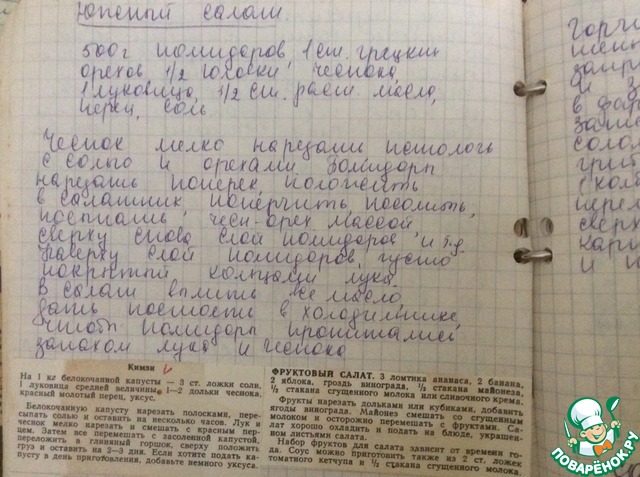 Южный салат
500г помидоров, 1 ст. грецких
орехов, 1/2 головки чеснока,
1 луковица, 1/2 ст. раст. масла,
перец, соль.
Чеснок мелко нарезать истолочь
с солью и орехами. Помидоры
нарезать поперек, положить
в салатник, поперчить, посолить,
посыпать чесн-орех. массой,
сверху снова слой помидоров и т.д.
Наверху слой помидоров, густо
покрытый кольцами лука.
В салат вылить все масло,
дать постоять в холодильнике,
чтобы помидоры пропитались
запахом лука и чеснока
Кимзи
На 1 кг белокочанной капусты — 3 ст. ложки соли,
1 луковица средней величины, 1—2 дольки чеснока,
красный молотый перец, уксус.
Белокочанную капусту нарезать полосками, пере-
сыпать солью и оставить на несколько часов. Лук и
чеснок мелко нарезать и смешать с красным пер-
цем. Затем все перемешать с засоленной капустой,
переложить в глиняный горшок, сверху положить
груз и оставить на 2—3 дня. Если хотите подать ка-
пусту в день приготовления, добавьте немного уксуса.
ФРУКТОВЫЙ САЛАТ. 3 ломтика ананаса, 2 банана,
2 яблока, гроздь винограда, 1/2 стакана майонеза,
1/2 стакана сгущенного молока или сливочного крема.
Фрукты нарезать дольками или кубиками, добавить
ягоды винограда. Майонез смешать со сгущенным
молоком и осторожно перемешать с фруктами. Са-
лат хорошо охладить и подать на блюде, украшен-
ном листьями салата.
Набор фруктов для салата зависит от времени го-
да. Соус можно приготовить также из 2 ст. ложек
томатного кетчупа и 1/2 стакана сгущенного молока.
ПОВАРЁНОК.РУ